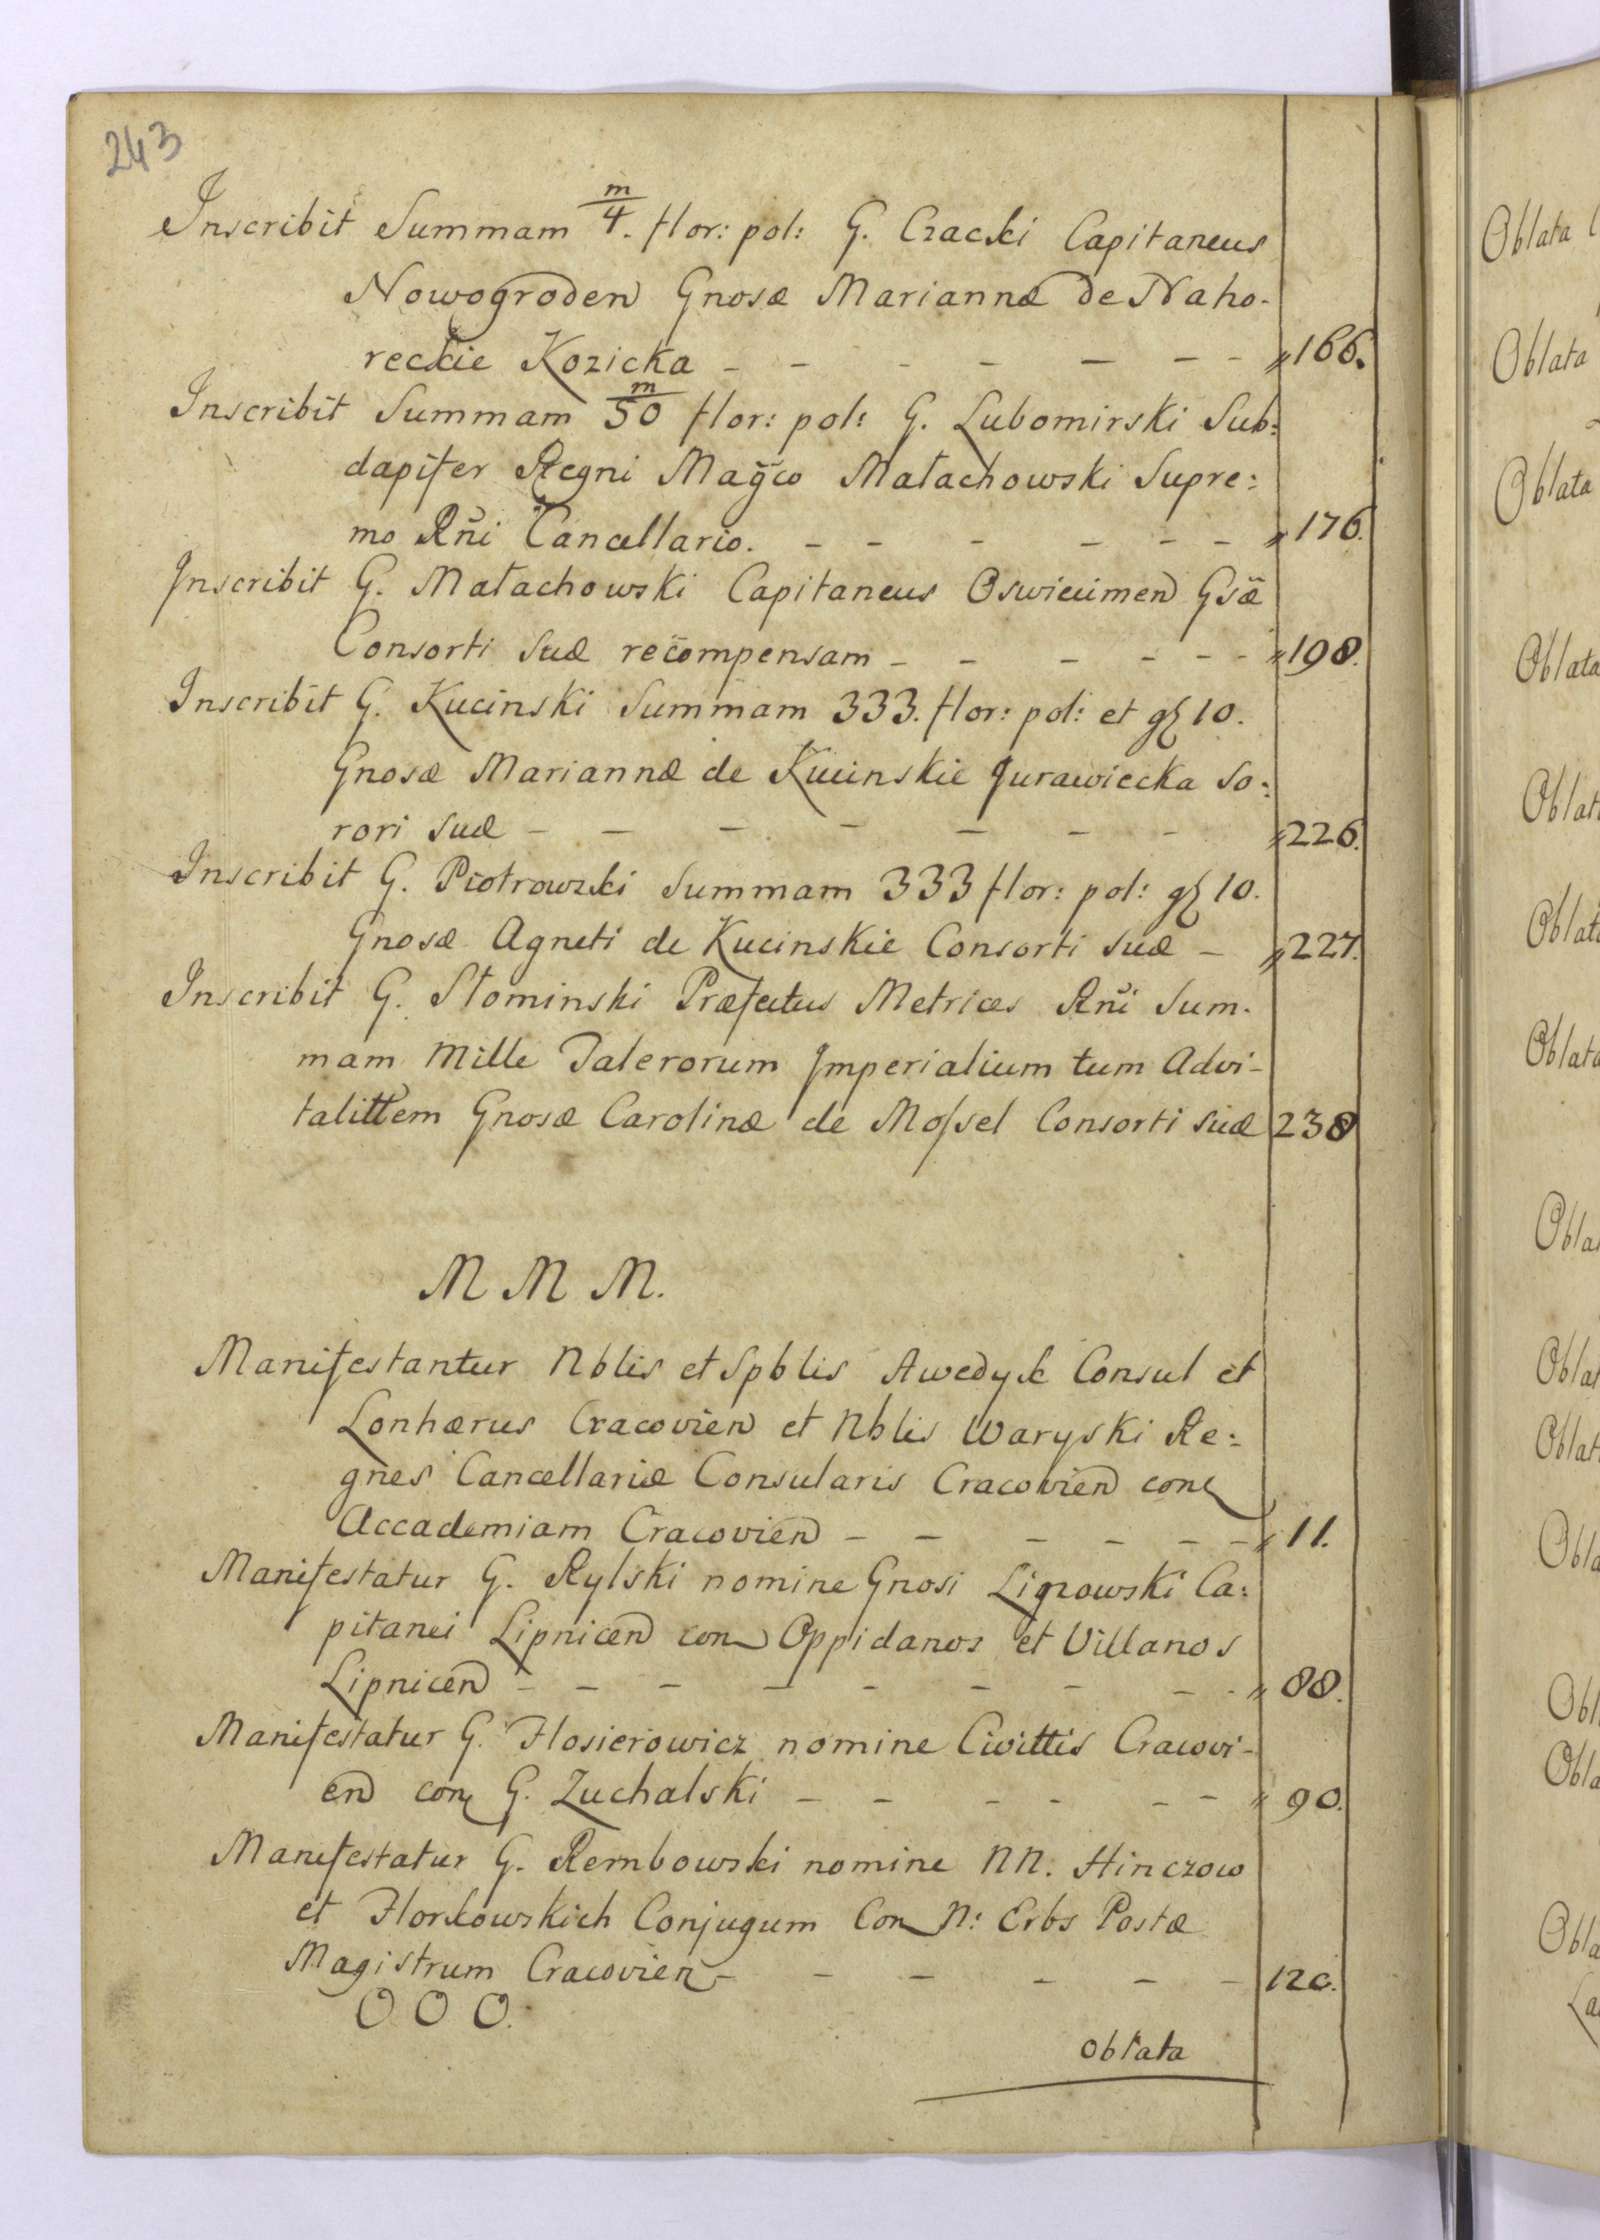 243
Inscribit Summam m/4. flor: pol: G. Czacki Capitaneus
Nowogroden Gnosæ Mariannæ de Naho-
reckie Kozicka - - - - - - - " 166.
Inscribit Summam m/50 flor: pol: G. Lubomirski Sub:
dapifer Regni Mag̃co Małachowski Supre:
mo Rñi Cancellario. - - - - - - " 176.
Inscribit G. Małachowski Capitaneus Oswiecimen Gsæ
Consorti suæ recompensam - - - - - - " 198.
Inscribit G. Kucinski Summam 333. flor: pol: et gζ 10.
Gnosæ Mariannæ de Kucinskie Jurawiecka So:
rori suæ - - - - - - - " 226.
Inscribit G. Piotrowski Summam 333 flor: pol: gζ 10.
Gnosæ Agneti de Kucinskie Consorti suæ - " 227.
Inscribit G. Słominski Præfectus Metrices Rñi Sum-
mam Mille Talerorum Imperialium tum Advi-
talittem Gnosæ Carolinæ de Mossel Consorti suæ 238
M M M.
Manifestantur Nblis et Spblis Awedyk Consul et
Lonhærus Cracovien et Nblis Waryski Re:
gnes Cancellariæ Consularis Cracovien con
Accademiam Cracovien - - - - - - " 11.
Manifestatur G. Rylski nomine Gnosi Lipowski Ca:
pitanei Lipnicen con Oppidanos et Villanos
Lipnicen - - - - - - - - - " 88.
Manifestatur G. Flosierowicz nomine Civittis Cracovi-
en con G. Zuchalski - - - - - - " 90.
Manifestatur G. Rembowski nomine NN. Hinczow
et Florkowskich Conjugum Con N: Erbs Postæ
Magistrum Cracovien - - - - - - 120.
O O O.
oblata
Oblata
Oblata
Oblata
Oblata